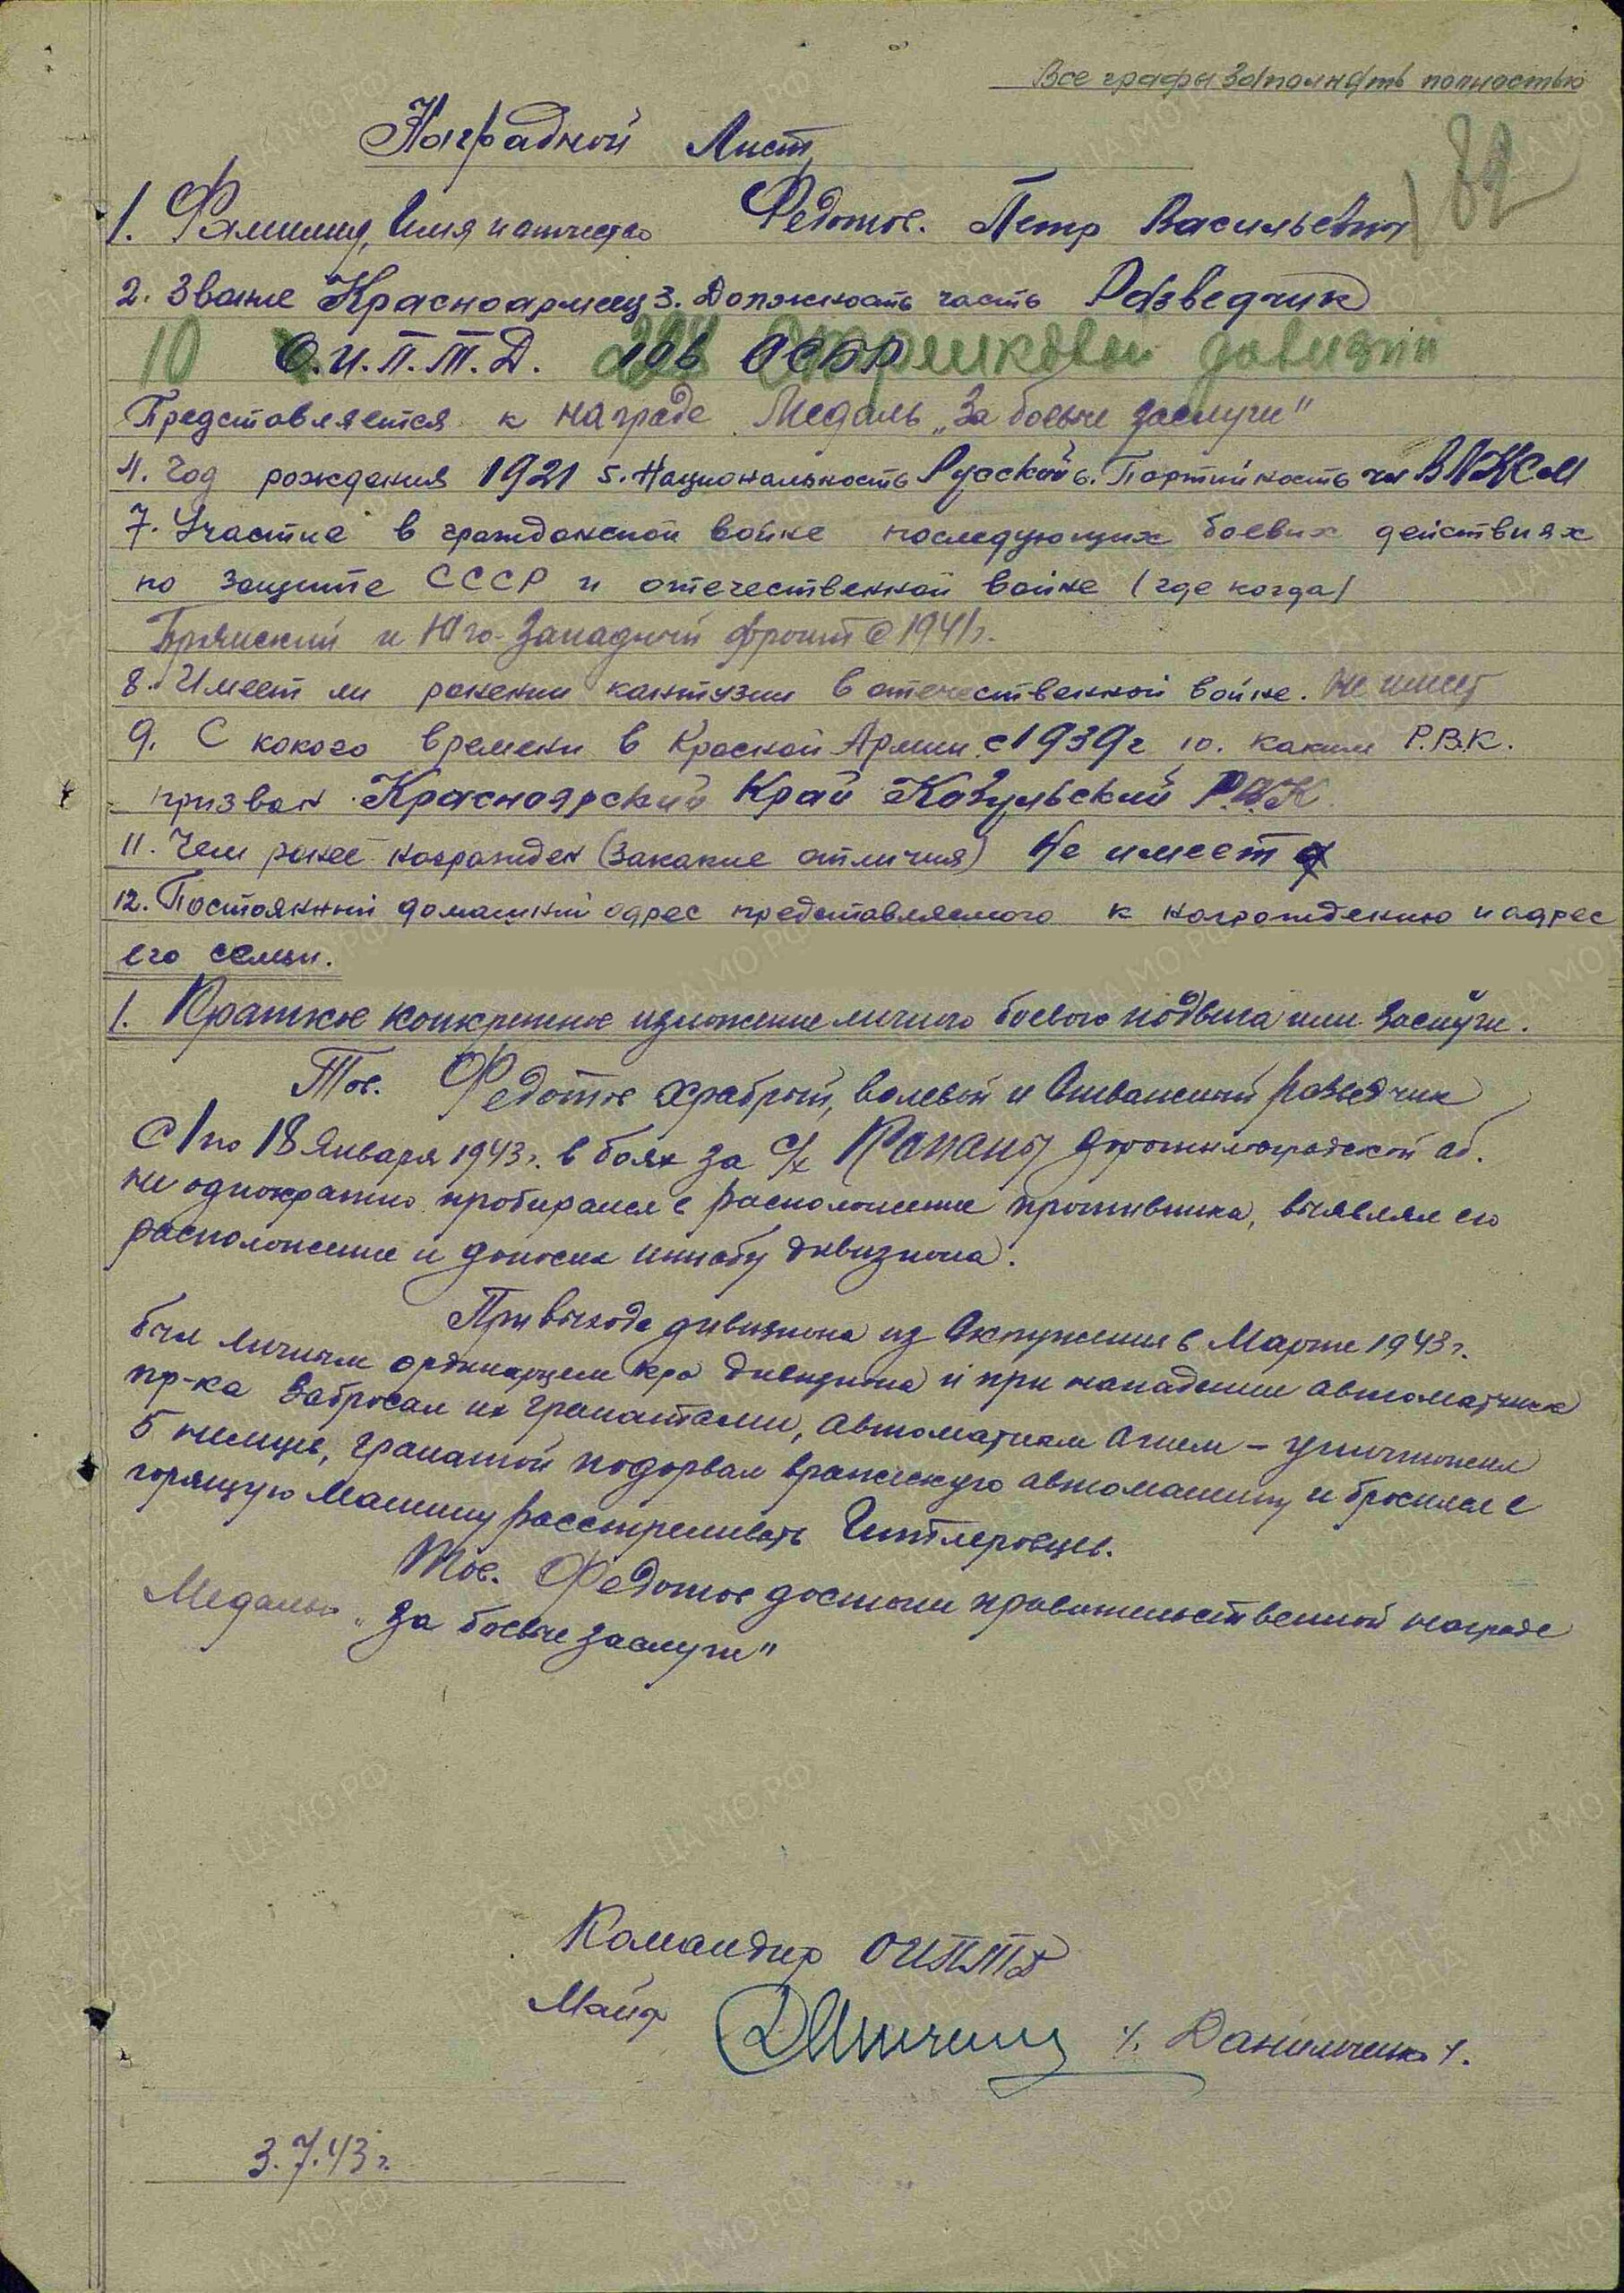 Все графы заполнять полностью
82
Наградной Лист
1. Фамилия, Имя и отчество Федотов. Петр Васильевич
2. Звание Красноармеец 3. Должность часть Разведчик
10 О.И.П.Т.Д. 106 ОСБР Стрелковой дивизии
Представляется к награде Медаль „За боевые заслуги"
4. Год рождения 1921 5. Национальность Русский 6. Партийность чл ВЛКСМ
7. Участие в гражданской войне последующих боевых действиях
по защите СССР и отечественной войне (где когда)
Брянский и Юго-Западный фронт с 1941г.
8. Имеет ли ранении контузии в отечественной войне. Не имеет
9. С какого времени в Красной Армии с 1939г 10. каким Р.В.К.
призван Красноярский Край Козульский Р.В.К.
11. Чем ранее награжден (за какие отличия) Не имеет
12. Постоянный домашний адрес представляемого к награждению и адрес
его семьи.
1. Краткое конкретное изложение личного боевого подвига или заслуги.
Тов. Федотов храбрый, волевой и разведчик
С 1 по 18 Января 1943г. в боях за с/х Ворошиловградской об.
не однократно пробирался в расположение противника, выявлял его
расположение и доносил штабу дивизиона.
При выходе дивизиона из Окружения в Марте 1943г.
был личным ординарцем к-ра дивизиона и при нападении автоматчиков
пр-ка забросал их гранатами, автоматным огнем – уничтожил
5 немцев, гранатой подорвал вражескую автомашину и бросился в
горящую Машину расстреливать Гитлеровцев.
Тов. Федотов достоин правительственной награде
Медалью „За боевые заслуги"
Командир ОИПТД
Майор /. Данильченко /.
3.7.43г.
ЦА МО РФ